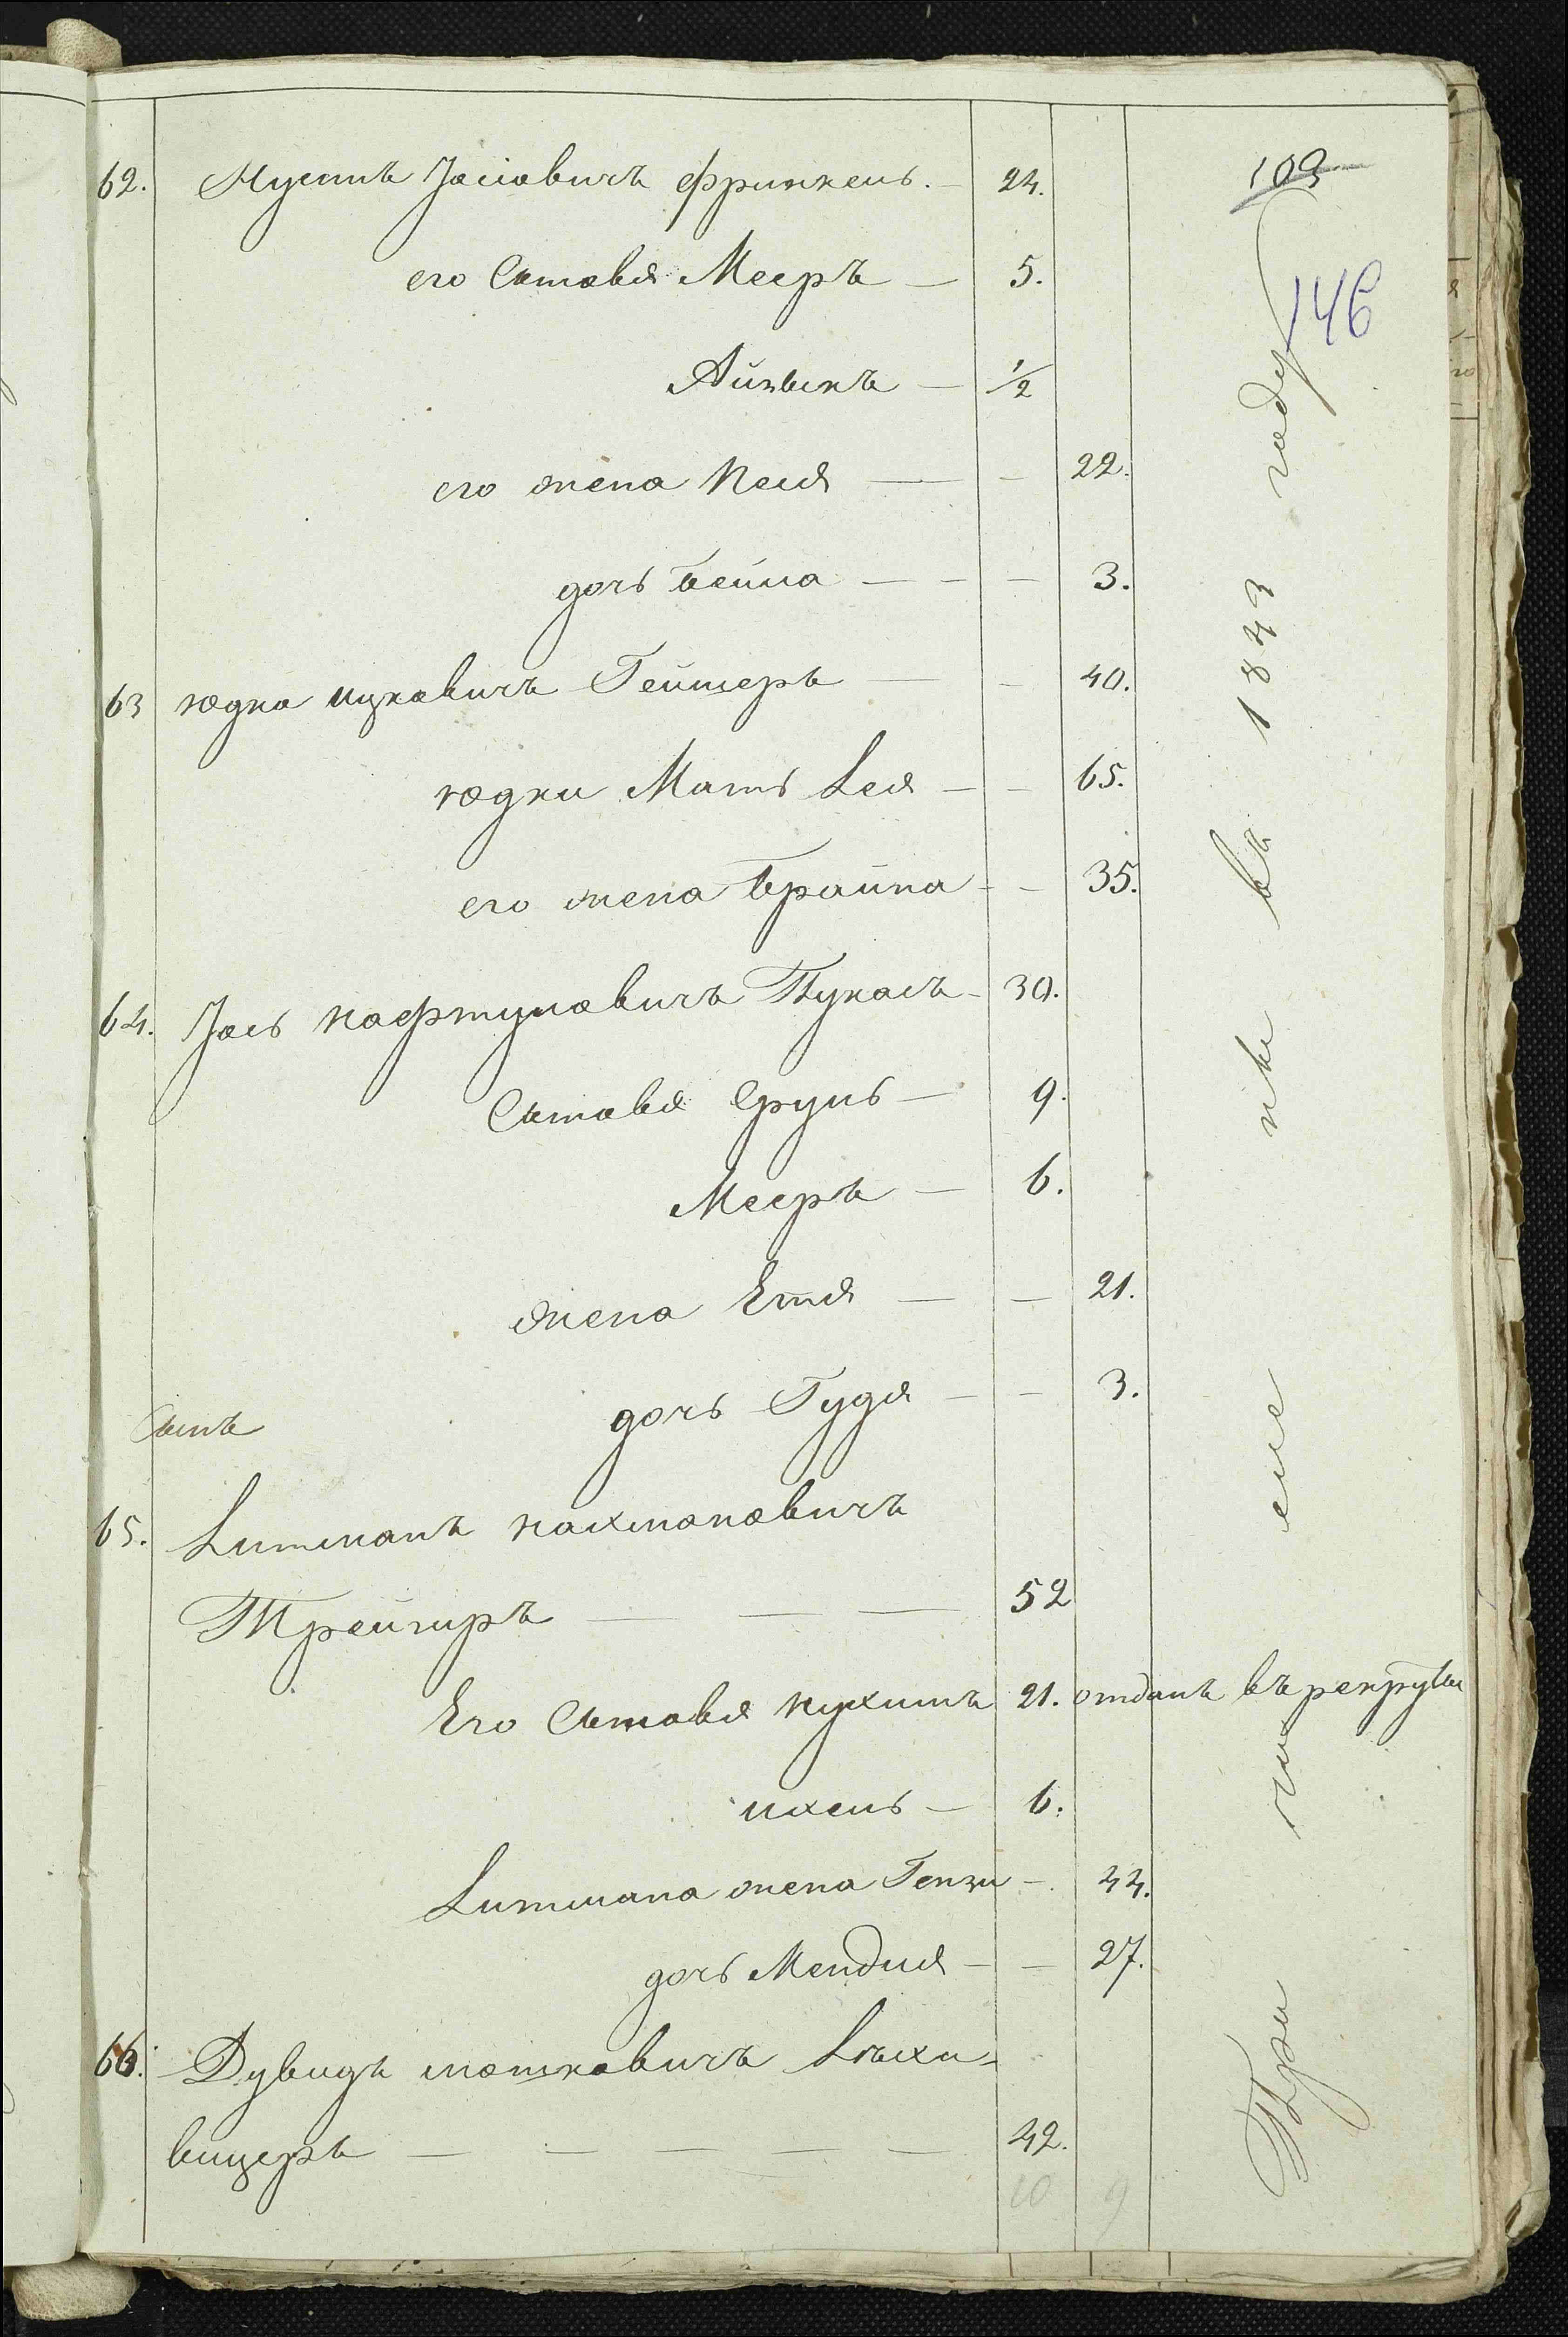 109
146
62. Нусинъ Іослевичъ Френкель. — 24.
его Сыновья Мееръ — 5.
Айзыкъ — 1/2
его жена Неся — — 22.
дочь Бейла — — — 3.
63 Годка Ицковичъ Гейшеръ — — 40.
Годки Мать Лея — — 65.
его жена Брайна — — 35.
64. Іось Нафтуловичъ Пукасъ — 30.
Сыновья Сруль — 9.
Мееръ — 6.
жена Етя — — 21.
дочь Гудя — — 3.
Сынъ
65. Литманъ Нахмановичъ
Трейгиръ — — — 52
Его Сыновья Нухимъ 21. отданъ въ рекруты
Ихель — 6.
Литмана жена Гензи — 44.
дочь Мендля — — 27.
66. Дувидъ Мошковичъ
вицеръ — — — — — 42.
10 9
При въ 1843 году